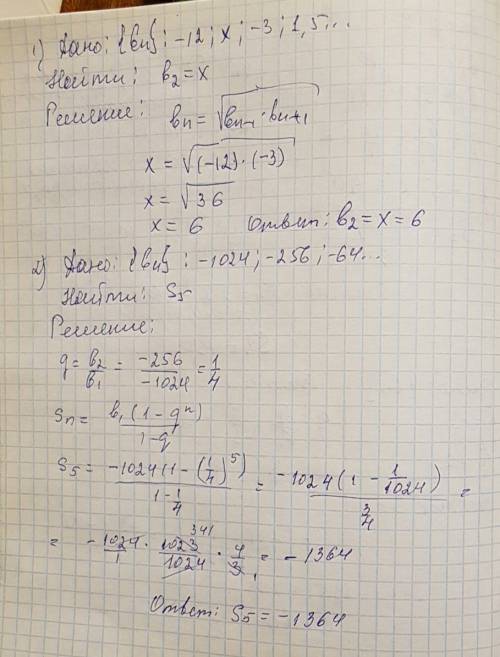 1) Дано: {bn}: -12; x; -3; 1,5...
Найти: b₂ = x
Решение: bn = √(bn-1 · bn+1)
x = √((-12) · (-3))
x = √36
x = 6 Ответ: b₂ = x = 6
2) Дано: {bn}: -1024; -256; -64...
Найти: S₅
Решение:
q = b₂/b₁ = -256/-1024 = 1/4
Sn = b₁(1 - qⁿ)/1 - q
S₅ = -1024(1 - (1/4)⁵)/1 - 1/4 = -1024(1 - 1/1024)/3/4 =
= -1024/1 · 1023/1024 · 4/3 = -1364
341 1
Ответ: S₅ = -1364